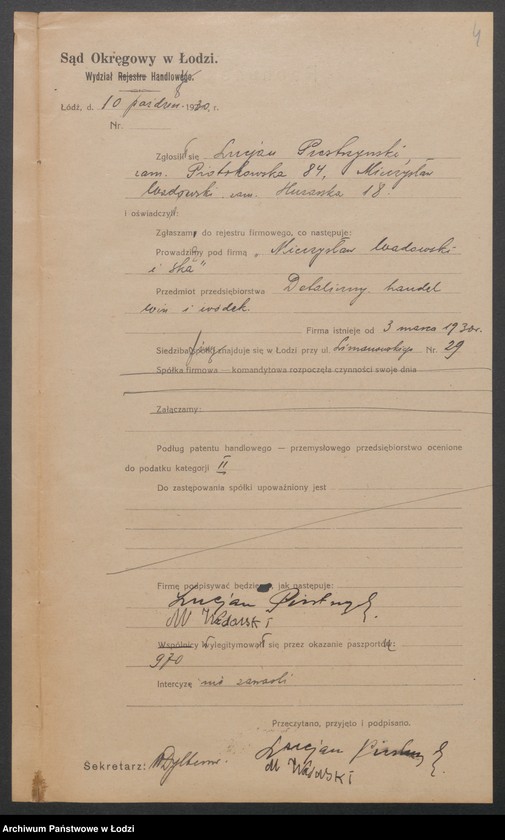 4
Sąd Okręgowy w Łodzi.
Wydział Rejestru Handlowego.
Łódź, d. 10 paździer. 1930. r.
Nr.
Zgłosili się Lucjan Piestrzyński
zam. Piotrkowska 84, Mieczysław
Wadowski zam. Husarska 18.
i oświadczyli:
Zgłaszamy do rejestru firmowego, co następuje:
Prowadzimy pod firmą „Mieczysław Wadowski
i Ska"
Przedmiot przedsiębiorstwa Detaliczny handel
win i wódek.
Firma istnieje od 3 marca 1930r.
Siedziba firmy znajduje się w Łodzi przy ul. Limanowskiego Nr. 29
Spółka firmowa — komandytowa rozpoczęła czynności swoje dnia
Załączamy:
Podług patentu handlowego — przemysłowego przedsiębiorstwo ocenione
do podatku kategorji II
Do zastępowania spółki upoważniony jest
Firmę podpisywać będziemy, jak następuje:
Lucjan
M Wadowski
Wspólnicy wylegitymowali się przez okazanie paszportów:
970
Intercyzę nie zawarli
Przeczytano, przyjęto i podpisano.
Sekretarz: Lucjan
M Wadowski
Archiwum Państwowe w Łodzi